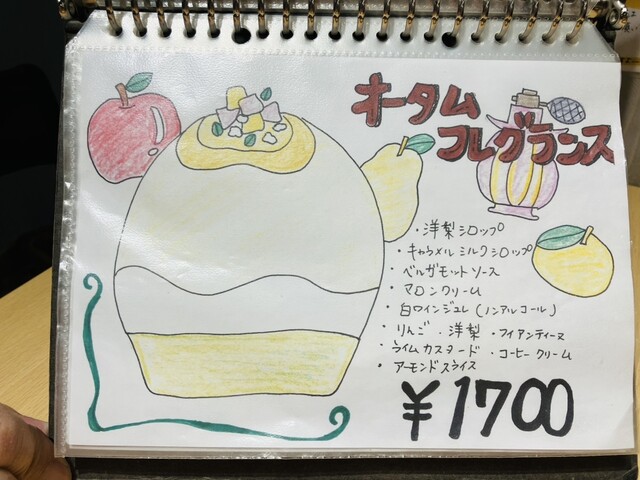 オータム
フレグランス
・洋梨シロップ
・キャラメルミルクシロップ
・ベルガモットソース
・マロンクリーム
・白ワインジュレ(ノンアルコール)
・りんご ・洋梨 ・フィアンティーヌ
・ライムカスタード ・コーヒークリーム
・アーモンドスライス
¥1700